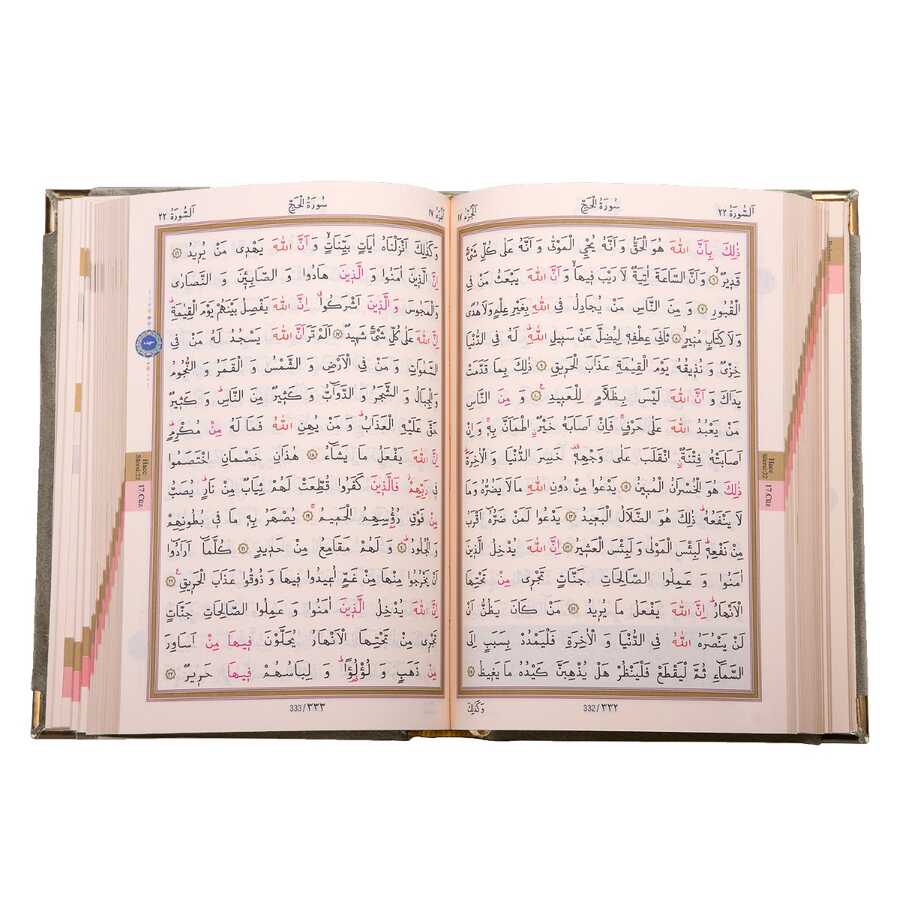 اَلسُّورَةُ ٢٢ سُورَةُ الْحَجِّ اَلْجُزْءُ ١٧
ذٰلِكَ بِاَنَّ اللّٰهَ هُوَ الْحَقُّ وَ اَنَّهُ يُحْيِ الْمَوْتٰى وَ اَنَّهُ عَلٰى كُلِّ شَيْءٍ
قَد۪يرٌ ٦ وَ اَنَّ السَّاعَةَ اٰتِيَةٌ لَا رَيْبَ ف۪يهَا وَ اَنَّ اللّٰهَ يَبْعَثُ مَنْ فِي
الْقُبُورِ ٧ وَ مِنَ النَّاسِ مَنْ يُجَادِلُ فِي اللّٰهِ بِغَيْرِ عِلْمٍ وَلَا هُدًى
وَلَا كِتَابٍ مُن۪يرٍ ٨ ثَانِيَ عِطْفِه۪ لِيُضِلَّ عَنْ سَب۪يلِ اللّٰهِ لَهُ فِي الدُّنْيَا
خِزْيٌ وَ نُذ۪يقُهُ يَوْمَ الْقِيٰمَةِ عَذَابَ الْحَر۪يقِ ٩ ذٰلِكَ بِمَا قَدَّمَتْ
يَدَاكَ وَ اَنَّ اللّٰهَ لَيْسَ بِظَلَّامٍ لِلْعَب۪يدِ ١٠ وَ مِنَ النَّاسِ
مَنْ يَعْبُدُ اللّٰهَ عَلٰى حَرْفٍ فَاِنْ اَصَابَهُ خَيْرٌ اطْمَاَنَّ بِه۪ وَ اِنْ
اَصَابَتْهُ فِتْنَةٌ انْقَلَبَ عَلٰى وَجْهِه۪ خَسِرَ الدُّنْيَا وَ الْاٰخِرَةَ
ذٰلِكَ هُوَ الْخُسْرَانُ الْمُب۪ينُ ١١ يَدْعُوا مِنْ دُونِ اللّٰهِ مَالَا يَضُرُّهُ وَمَا
لَا يَنْفَعُهُ ذٰلِكَ هُوَ الضَّلَالُ الْبَع۪يدُ ١٢ يَدْعُوا لَمَنْ ضَرُّهُ اَقْرَبُ
مِنْ نَفْعِه۪ لَبِئْسَ الْمَوْلٰى وَ لَبِئْسَ الْعَش۪يرُ ١٣ اِنَّ اللّٰهَ يُدْخِلُ الَّذ۪ينَ
اٰمَنُوا وَ عَمِلُوا الصَّالِحَاتِ جَنَّاتٍ تَجْر۪ي مِنْ تَحْتِهَا
الْاَنْهَارُ اِنَّ اللّٰهَ يَفْعَلُ مَا يُر۪يدُ ١٤ مَنْ كَانَ يَظُنُّ اَنْ
لَنْ يَنْصُرَهُ اللّٰهُ فِي الدُّنْيَا وَ الْاٰخِرَةِ فَلْيَمْدُدْ بِسَبَبٍ اِلَى
السَّمَٓاءِ ثُمَّ لْيَقْطَعْ فَلْيَنْظُرْ هَلْ يُذْهِبَنَّ كَيْدُهُ مَا يَغ۪يظُ ١٥
332/٣٣٢ وَكَذٰلِكَ
Hacc
Sûresi:22
17.Cüz
اَلْجُزْءُ ١٧ سُورَةُ الْحَجِّ اَلسُّورَةُ ٢٢
وَكَذٰلِكَ اَنْزَلْنَاهُ اٰيَاتٍ بَيِّنَاتٍ وَ اَنَّ اللّٰهَ يَهْد۪ي مَنْ يُر۪يدُ ١٦
اِنَّ الَّذ۪ينَ اٰمَنُوا وَ الَّذ۪ينَ هَادُوا وَ الصَّابِـ۪ٔينَ وَ النَّصَارٰى
وَ الْمَجُوسَ وَ الَّذ۪ينَ اَشْرَكُوا اِنَّ اللّٰهَ يَفْصِلُ بَيْنَهُمْ يَوْمَ الْقِيٰمَةِ
اِنَّ اللّٰهَ عَلٰى كُلِّ شَيْءٍ شَه۪يدٌ ١٧ اَلَمْ تَرَ اَنَّ اللّٰهَ يَسْجُدُ لَهُ مَنْ فِي
السَّمٰوَاتِ وَ مَنْ فِي الْاَرْضِ وَ الشَّمْسُ وَ الْقَمَرُ وَ النُّجُومُ
وَ الْجِبَالُ وَ الشَّجَرُ وَ الدَّوَٓابُّ وَ كَث۪يرٌ مِنَ النَّاسِ وَ كَث۪يرٌ
حَقَّ عَلَيْهِ الْعَذَابُ وَ مَنْ يُهِنِ اللّٰهُ فَمَا لَهُ مِنْ مُكْرِمٍ
اِنَّ اللّٰهَ يَفْعَلُ مَا يَشَٓاءُ ١٨ هٰذَانِ خَصْمَانِ اخْتَصَمُوا
ف۪ي رَبِّهِمْ فَالَّذ۪ينَ كَفَرُوا قُطِّعَتْ لَهُمْ ثِيَابٌ مِنْ نَارٍ يُصَبُّ
مِنْ فَوْقِ رُؤُسِهِمُ الْحَم۪يمُ ١٩ يُصْهَرُ بِه۪ مَا ف۪ي بُطُونِهِمْ
وَ الْجُلُودُ ٢٠ وَ لَهُمْ مَقَامِعُ مِنْ حَد۪يدٍ ٢١ كُلَّمَٓا اَرَادُٓوا
اَنْ يَخْرُجُوا مِنْهَا مِنْ غَمٍّ اُع۪يدُوا ف۪يهَا وَ ذُوقُوا عَذَابَ الْحَر۪يقِ ٢٢
اِنَّ اللّٰهَ يُدْخِلُ الَّذ۪ينَ اٰمَنُوا وَ عَمِلُوا الصَّالِحَاتِ جَنَّاتٍ
تَجْر۪ي مِنْ تَحْتِهَا الْاَنْهَارُ يُحَلَّوْنَ ف۪يهَا مِنْ اَسَاوِرَ
مِنْ ذَهَبٍ وَ لُؤْلُؤًا وَ لِبَاسُهُمْ ف۪يهَا حَر۪يرٌ ٢٣
333/٣٣٣
Hacc
Sûresi:22
17.Cüz